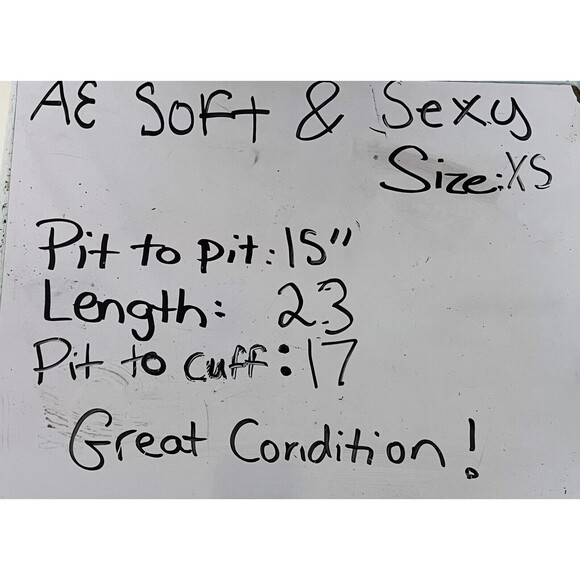 AE Soft & Sexy
Size: XS
Pit to pit: 15"
Length: 23
Pit to cuff: 17
Great Condition!